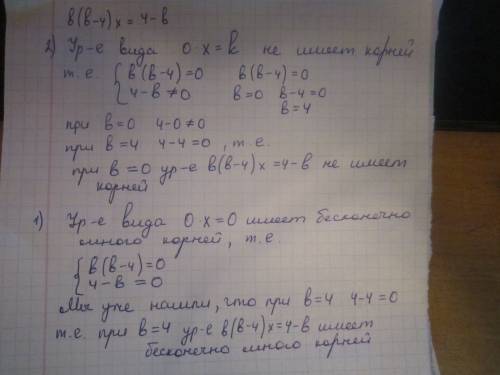 в(в-4)x = 4-в
2) Ур-е вида 0·x=k не имеет корней
т.е. { в(в-4)=0 в(в-4)=0
4-в≠0 в=0 в-4=0
в=4
при в=0 4-0≠0
при в=4 4-4=0, т.е.
при в=0 ур-е в(в-4)x=4-в не имеет
корней
1) Ур-е вида 0·x=0 имеет бесконечно
много корней, т.е.
{ в(в-4)=0
4-в=0
Мы уже нашли, что при в=4 4-4=0
т.е. при в=4 ур-е в(в-4)x=4-в имеет
бесконечно много корней